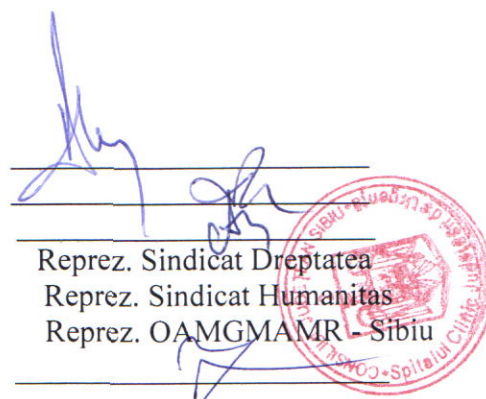 Reprez. Sindicat Dreptatea
Reprez. Sindicat Humanitas
Reprez. OAMGMAMR - Sibiu
CONSILIUL JUDEȚEAN SIBIU
Spitalul Clinic